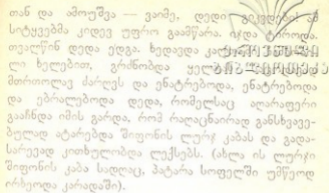 თან და ამოუშვა — ვაიმე, დედი
სიტყვებმა კიდევ უფრო გააძწარა. იჯდა ტიროდა.
თვალწინ დედა ედგა. ხედავდა
ლი ხელებით, გრძნობდა
მთრთოლავ ძარღვს და ენატრებოდა, ენატრებოდა
და ებრალებოდა დედა, რომელსაც აღარაფერი
გააჩნდა იმის გარდა, რომ რაღაცნაირად განსხვავე-
ბულად ატარებდა შიფონის ლურჯ კაბას და გადა-
სარევად კითხულობდა ლექსებს. (ახლა ის ლურჯი
შიფონის კაბა სადღაც, პატარა სოფელში უმწეოდ
ირხეოდა კარადაში).